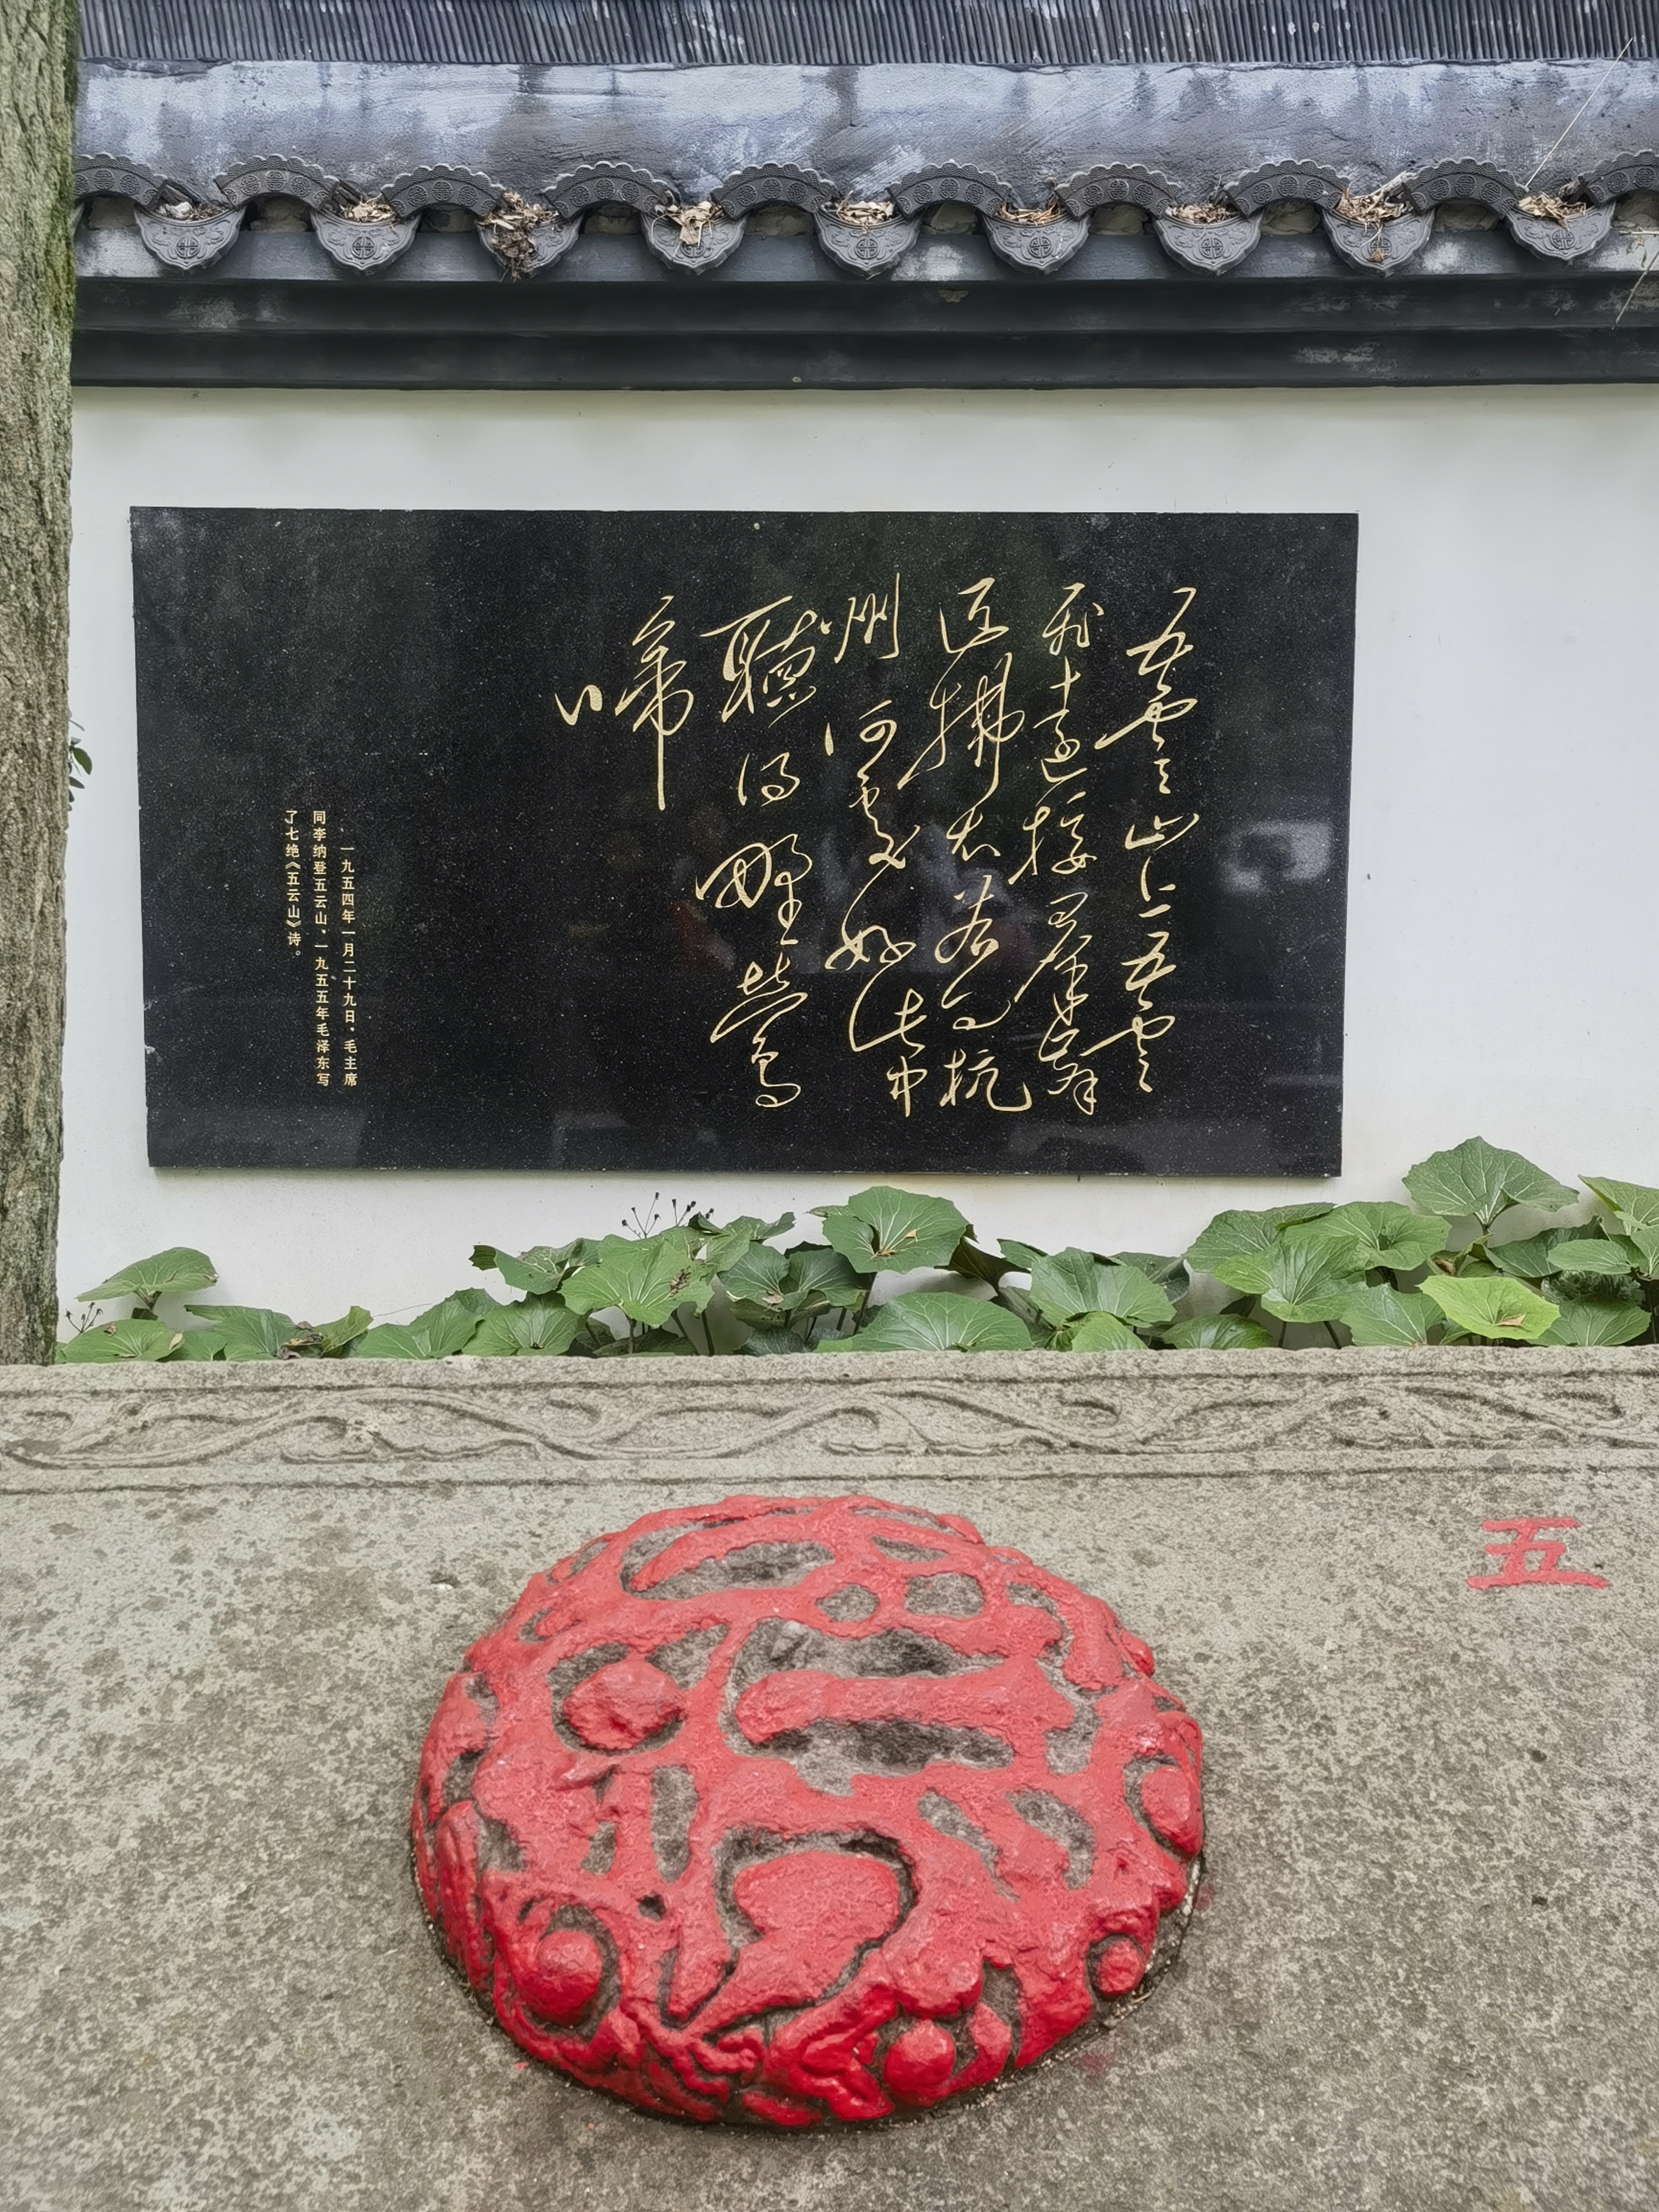 五雲山上五雲
飛遠接羣峰
近拂若问杭
州何處好此中
聽得野鶯
啼
一九五四年一月二十九日，毛主席
同李纳登五云山，一九五五年毛泽东写
了七绝《五云山》诗。
五